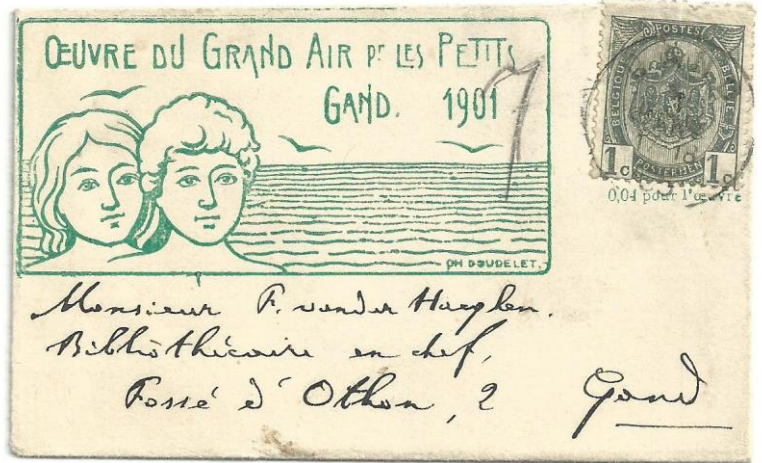 ŒUVRE DU GRAND AIR Pr LES PETITS
GAND. 1901
7
POSTES
BELGIQUE
BELGIE
1c
POSTERIJEN
1c
0,04 pour l'œuvre
CH DOUDELET.
Monsieur F. vander Haeghen.
Bibliothécaire en chef,
Fossé d'Othon, 2
Gand